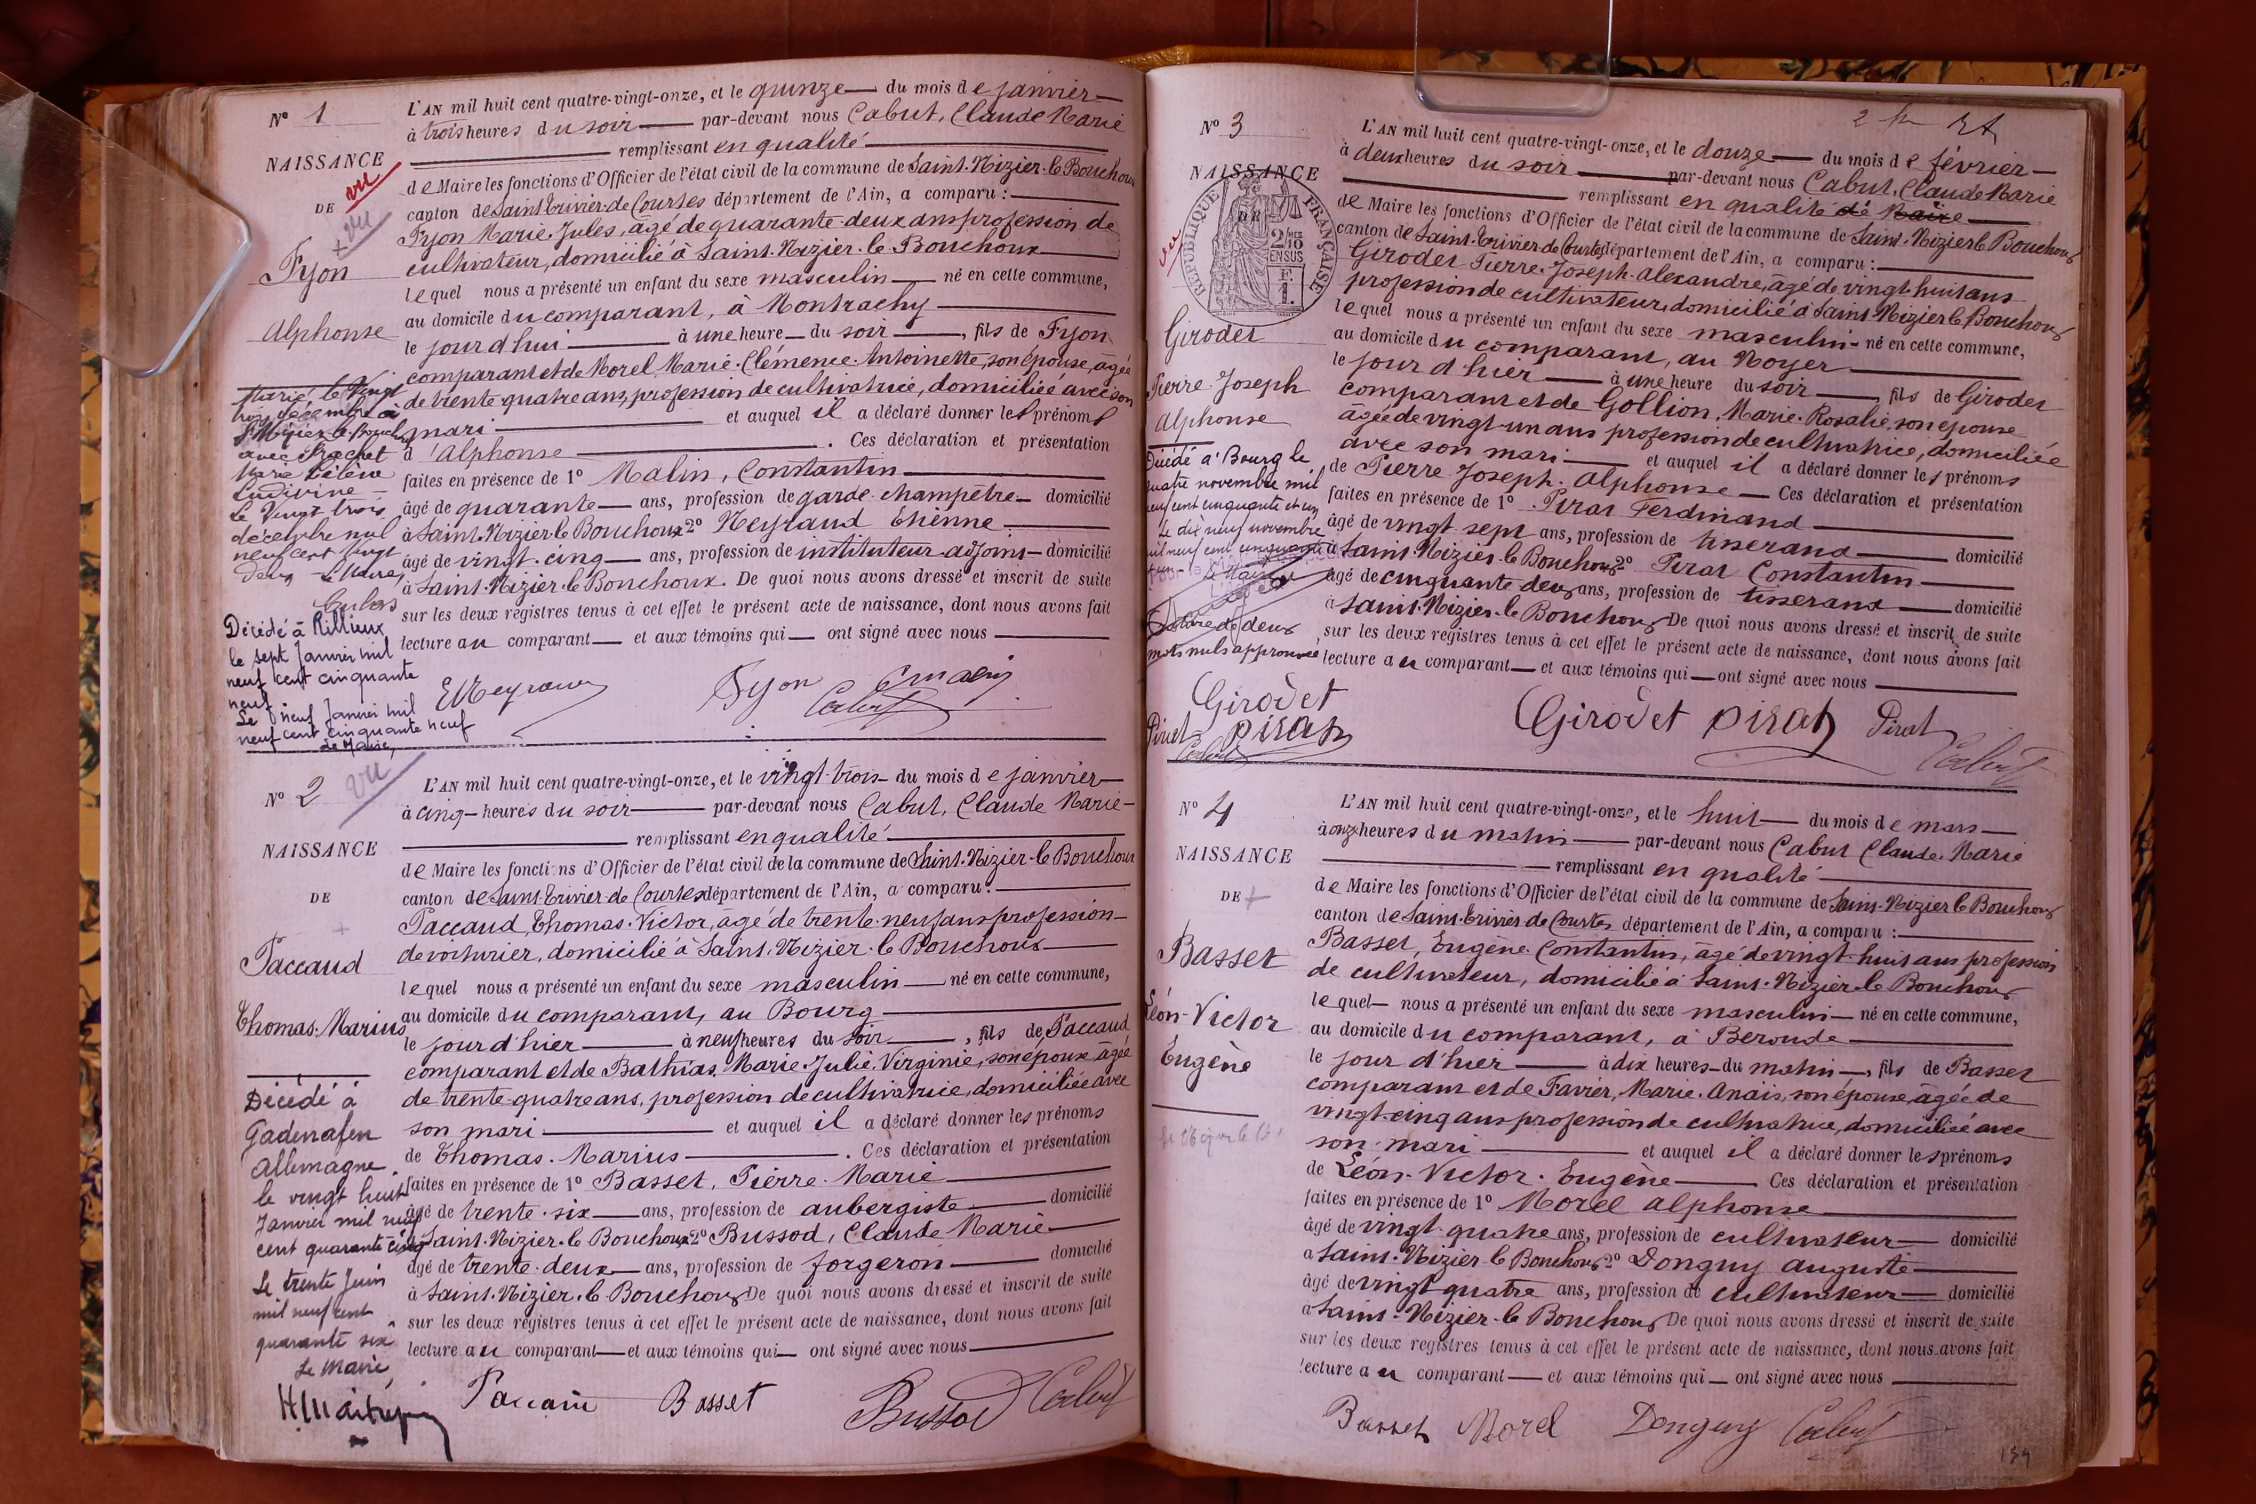 N° 1
NAISSANCE
DE
vu
vu
Fyon
Alphonse
Marié le Vingt
trois décembre à
St Nizier-le-Bouchoux
avec Brachet
Marie Hélène
Ludivine
Le Vingt trois
décembre mil
neuf cent vingt
deux Le Maire,
Décédé à Rillieux
le sept Janvier mil
neuf cent cinquante
neuf.
Le neuf Janvier mil
neuf cent cinquante neuf
Le Maire,
L'AN mil huit cent quatre-vingt-onze, et le quinze du mois de janvier
à trois heures du soir par-devant nous Cabut, Claude Marie
remplissant en qualité
de Maire les fonctions d'Officier de l'état civil de la commune de Saint-Nizier-le-Bouchoux
canton de Saint-Trivier-de-Courtes département de l'Ain, a comparu :
Fyon Marie-Jules, âgé de quarante-deux ans profession de
cultivateur, domicilié à Saint-Nizier-le-Bouchoux
lequel nous a présenté un enfant du sexe masculin né en cette commune,
au domicile du comparant, à Montrachy
le jour d'hui à une heure du soir, fils de Fyon
comparant et de Morel Marie-Clémence-Antoinette, son épouse, âgée
de trente quatre ans, profession de cultivatrice, domiciliée avec son
mari et auquel il a déclaré donner les prénoms
d'Alphonse. Ces déclaration et présentation
faites en présence de 1° Malin, Constantin
âgé de quarante ans, profession de garde-champêtre domicilié
à Saint-Nizier-le-Bouchoux 2° Neyraud Etienne
âgé de vingt-cinq ans, profession de instituteur-adjoint domicilié
à Saint-Nizier-le-Bouchoux. De quoi nous avons dressé et inscrit de suite
sur les deux registres tenus à cet effet le présent acte de naissance, dont nous avons fait
lecture au comparant et aux témoins qui ont signé avec nous
E Neyraud Fyon C Malin
Cabut
N° 2
vu
NAISSANCE
DE
Paccaud
Thomas-Marius
Décédé à
Gadenafen
Allemagne
le vingt huit
Janvier mil neuf
cent quarante cinq
Le trente Juin
mil neuf cent
quarante six
Le Maire,
L'AN mil huit cent quatre-vingt-onze, et le vingt-trois du mois de janvier
à cinq heures du soir par-devant nous Cabut, Claude Marie
remplissant en qualité
de Maire les fonctions d'Officier de l'état civil de la commune de Saint-Nizier-le-Bouchoux
canton de Saint-Trivier-de-Courtes département de l'Ain, a comparu :
Paccaud, Thomas-Victor, âgé de trente-neuf ans profession
de voiturier, domicilié à Saint-Nizier-le-Bouchoux
lequel nous a présenté un enfant du sexe masculin né en cette commune,
au domicile du comparant, au Bourg
le jour d'hier à neuf heures du soir, fils de Paccaud
comparant et de Bathias Marie-Julie-Virginie, son époux âgée
de trente-quatre ans, profession de cultivatrice, domiciliée avec
son mari et auquel il a déclaré donner les prénoms
de Thomas-Marius. Ces déclaration et présentation
faites en présence de 1° Basset, Pierre-Marie
âgé de trente-six ans, profession de aubergiste domicilié
à Saint-Nizier-le-Bouchoux 2° Bussod, Claude Marie
âgé de trente-deux ans, profession de forgeron domicilié
à Saint-Nizier-le-Bouchoux De quoi nous avons dressé et inscrit de suite
sur les deux registres tenus à cet effet le présent acte de naissance, dont nous avons fait
lecture au comparant et aux témoins qui ont signé avec nous
Paccaud Basset Bussod Cabut
N° 3
NAISSANCE
RÉPUBLIQUE FRANÇAISE
2/10
EN SUS
vu
Girodet
Pierre-Joseph
Alphonse
Décédé à Bourg le
quatre novembre mil
neuf cent cinquante et un
Le dix neuf novembre
mil neuf cent cinquante et
un
Le Maire
Rature de deux
mots nuls approuvée
Girodet
Pirat Pirat
Cabut
L'AN mil huit cent quatre-vingt-onze, et le douze du mois de février
à deux heures du soir par-devant nous Cabut, Claude Marie
remplissant en qualité de Maire
de Maire les fonctions d'Officier de l'état civil de la commune de Saint-Nizier-le-Bouchoux
canton de Saint-Trivier-de-Courtes département de l'Ain, a comparu :
Girodet Pierre-Joseph-Alexandre, âgé de vingt-huit ans
profession de cultivateur, domicilié à Saint-Nizier-le-Bouchoux
lequel nous a présenté un enfant du sexe masculin né en cette commune,
au domicile du comparant, au Noyer
le jour d'hier à une heure du soir, fils de Girodet
comparant et de Gollion, Marie-Rosalie, son épouse
âgée de vingt-un ans profession de cultivatrice, domiciliée
avec son mari et auquel il a déclaré donner les prénoms
de Pierre Joseph-Alphonse Ces déclaration et présentation
faites en présence de 1° Pirat Ferdinand
âgé de vingt sept ans, profession de tisserand domicilié
à Saint-Nizier-le-Bouchoux 2° Pirat Constantin
âgé de cinquante deux ans, profession de tisserand domicilié
à Saint-Nizier-le-Bouchoux De quoi nous avons dressé et inscrit de suite
sur les deux registres tenus à cet effet le présent acte de naissance, dont nous avons fait
lecture au comparant et aux témoins qui ont signé avec nous
Girodet Pirat Pirat
Cabut
N° 4
NAISSANCE
DE
Basset
Léon-Victor
Eugène
L'AN mil huit cent quatre-vingt-onze, et le huit du mois de mars
à onze heures du matin par-devant nous Cabut Claude-Marie
remplissant en qualité
de Maire les fonctions d'Officier de l'état civil de la commune de Saint-Nizier-le-Bouchoux
canton de Saint-Trivier-de-Courtes département de l'Ain, a comparu :
Basset, Eugène-Constantin, âgé de vingt-huit ans profession
de cultivateur, domicilié à Saint-Nizier-le-Bouchoux
lequel nous a présenté un enfant du sexe masculin né en cette commune,
au domicile du comparant, à Beroude
le jour d'hier à dix heures du matin, fils de Basset
comparant et de Favier, Marie-Anaïs, son épouse, âgée de
vingt-cinq ans profession de cultivatrice, domiciliée avec
son mari et auquel il a déclaré donner les prénoms
de Léon-Victor-Eugène Ces déclaration et présentation
faites en présence de 1° Morel Alphonse
âgé de vingt-quatre ans, profession de cultivateur domicilié
à Saint-Nizier-le-Bouchoux 2° Donguy Auguste
âgé de vingt-quatre ans, profession de cultivateur domicilié
à Saint-Nizier-le-Bouchoux De quoi nous avons dressé et inscrit de suite
sur les deux registres tenus à cet effet le présent acte de naissance, dont nous avons fait
lecture au comparant et aux témoins qui ont signé avec nous
Basset Morel Donguy Cabut
154